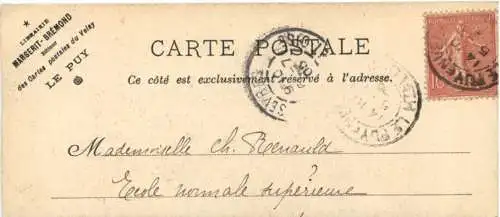 LIBRAIRIE
MARGERIT-BRÉMOND
des Cartes postales du Velay
LE PUY
CARTE POSTALE
Ce côté est exclusivement réservé à l'adresse.
Mademoiselle Ch. Renauld
Ecole normale supérieure